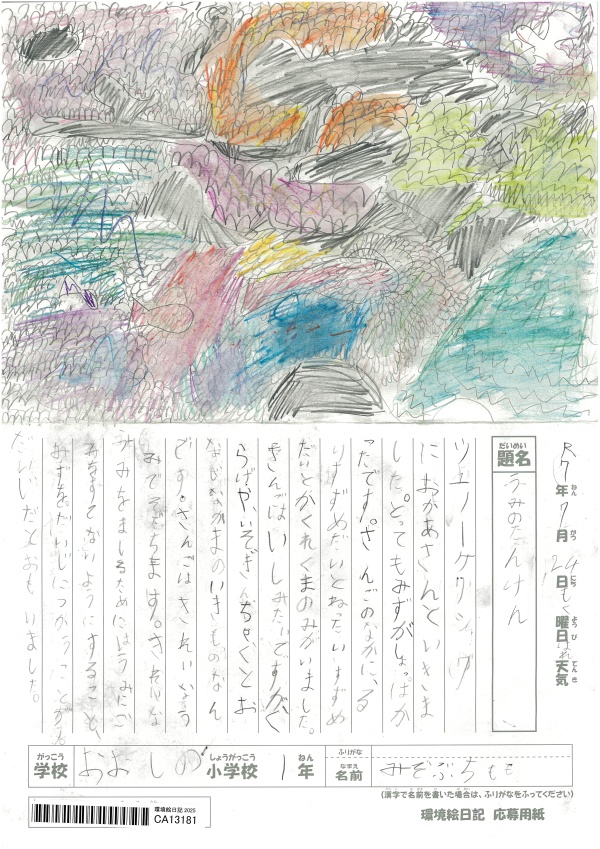 R7年7月24日もく曜日はれ天気
ねん
がつ
にち
ようび
てんき
だいめい
題名
うみのたんけん
ツエノーケリング
におかあさんといきま
した。とってもみずがしょっぱか
ったです。さんごのなかに、る
りすずめだいとねったいすずめ
だいとかくれくまのみがいました。
さんごはいしみたいですが、く
らげや、いそぎんちゃくとお
なじなかまのいきものなん
です。さんごはきれいな
みでそだちます。きれいな
うみをまもるためにはうみにご
みをすてないようにすることと、
みずをだいじにつかうことが
だいじだとおもいました。
がっこう
学校
およしの
しょうがっこう
小学校
1
ねん
年
ふりがな
なまえ
名前
みぞぶちもも
(漢字で名前を書いた場合は、ふりがなをふってください)
環境絵日記 2025
CA13181
環境絵日記 応募用紙